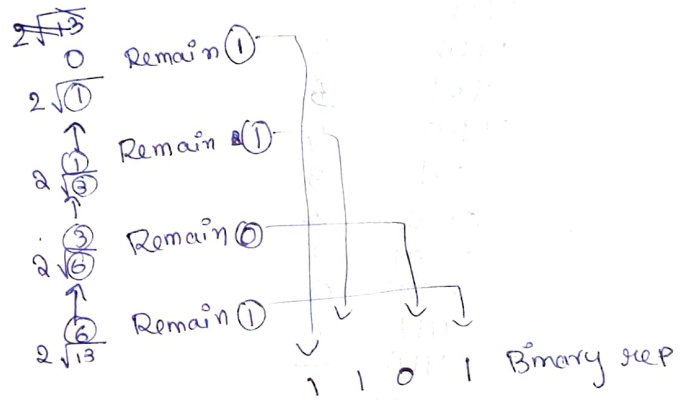 2√13
0 Remain 1
2 √1
1 Remain 1
2 √3
3 Remain 0
2 √6
6 Remain 1
2 √13
1 1 0 1 Binary rep